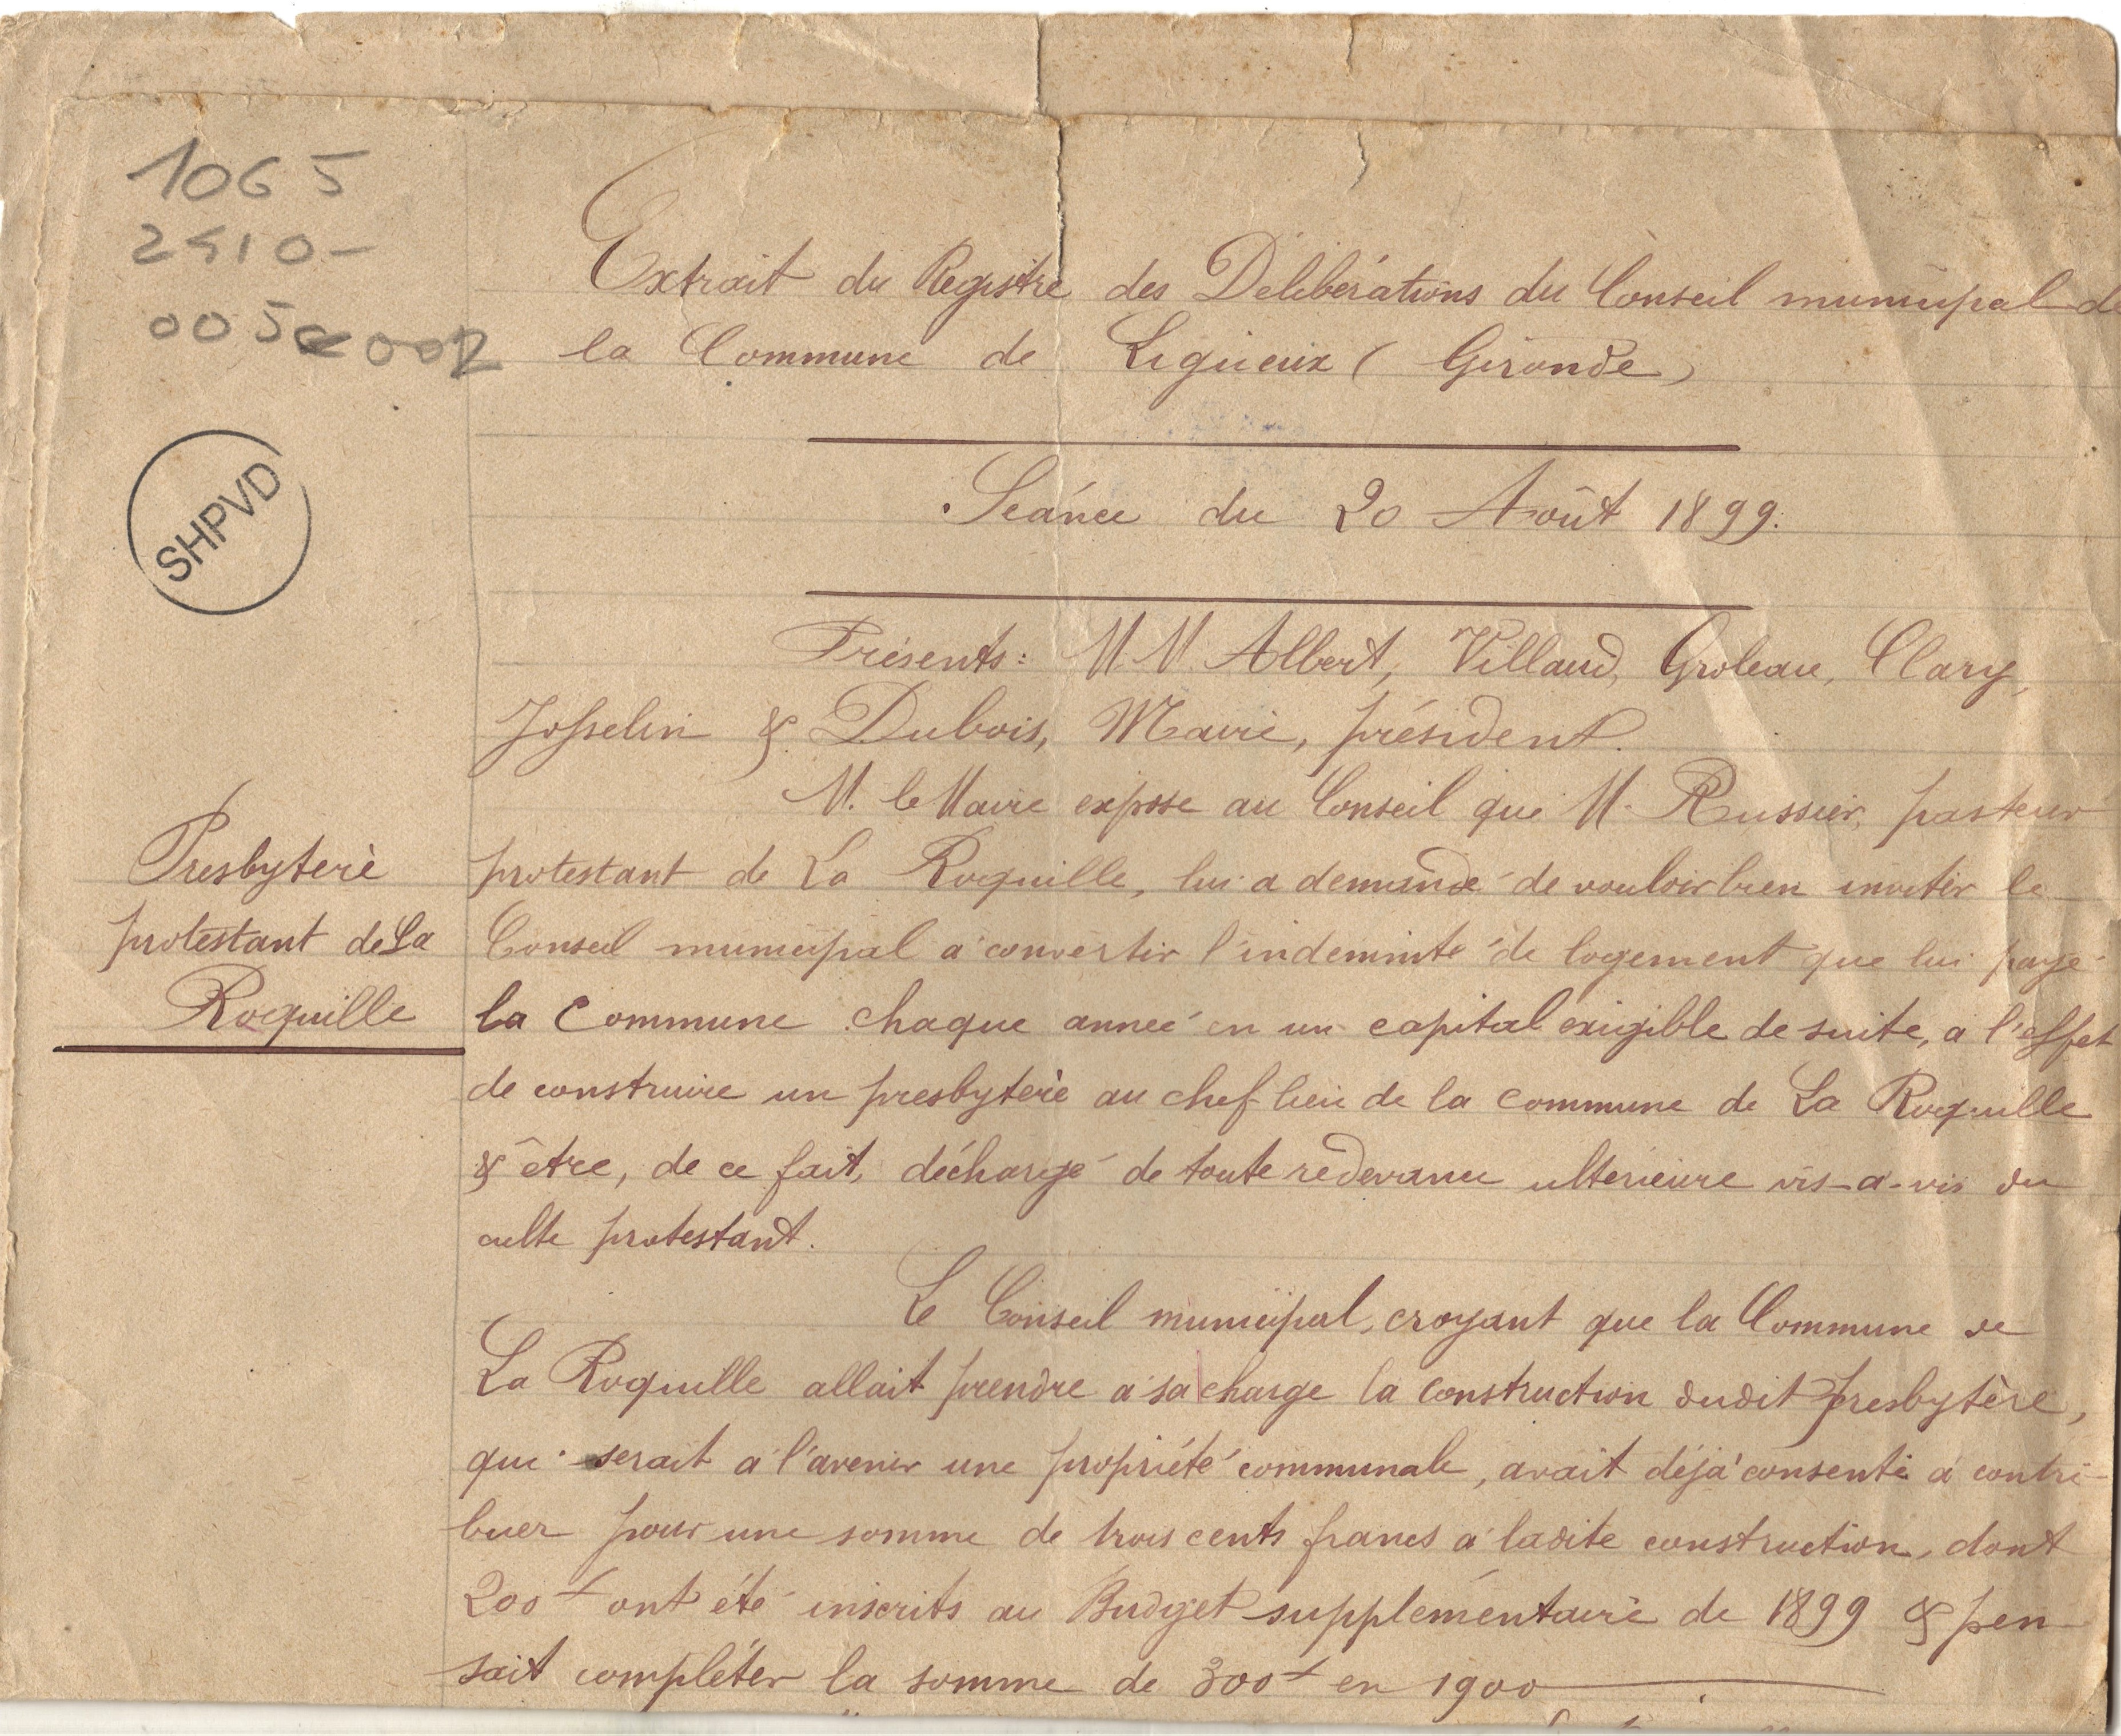 1065
2510-
005 002
SHPVD
Extrait du Registre des Délibérations du Conseil municipal de
la Commune de Ligueux (Gironde)
Séance du 20 Août 1899.
Présents: M.M. Albert, Villaud, Groleau, Clary,
Josselin & Dubois, Maire, président.
M. le Maire expose au Conseil que M. Russier, pasteur
Presbytère
protestant de La
Roquille
protestant de La Roquille, lui a demandé de vouloir bien inviter le
Conseil municipal à convertir l'indemnité de logement que lui paye
la Commune chaque année en un capital exigible de suite, à l'effet
de construire un presbytère au chef-lieu de la commune de La Roquille
& être, de ce fait, déchargé de toute redevance ultérieure vis-à-vis du
culte protestant.
Le Conseil municipal, croyant que la Commune de
La Roquille allait prendre à sa charge la construction dudit presbytère,
qui serait à l'avenir une propriété communale, avait déjà consenti à contri-
buer pour une somme de trois cents francs à ladite construction, dont
200f ont été inscrits au Budget supplémentaire de 1899 & pen-
sait compléter la somme de 300f en 1900